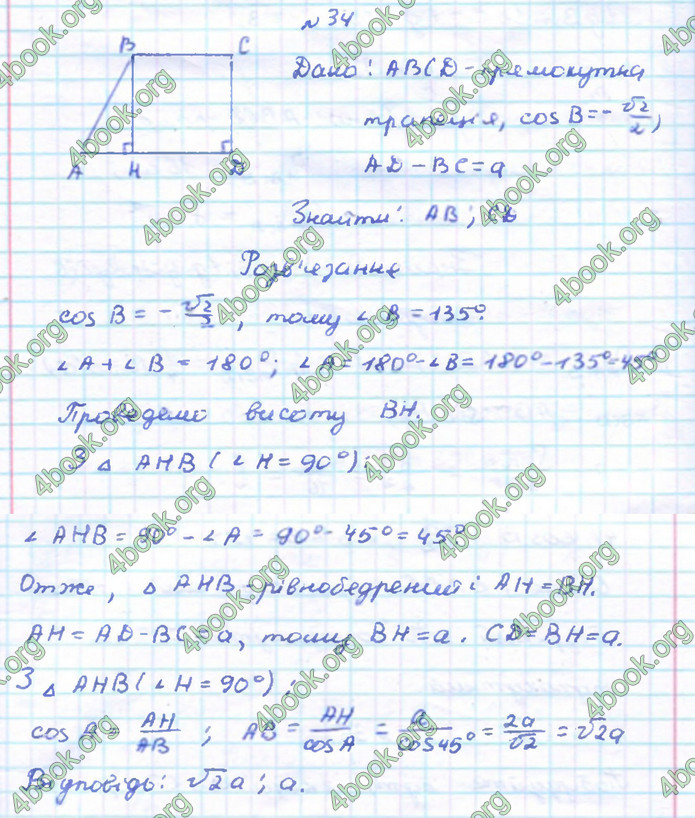 № 34
B C
Дано: ABCD - прямокутна
трапеція, cos B = - √2/2,
A H D
AD - BC = a
Знайти: AB; CD
Розв'язання
cos B = - √2/2, тому ∠B = 135°.
∠A + ∠B = 180°; ∠A = 180° - ∠B = 180° - 135° = 45°
Проведемо висоту BH.
З △ AHB (∠H = 90°):
∠AHB = 90° - ∠A = 90° - 45° = 45°.
Отже, △ AHB - рівнобедрений і AH = BH.
AH = AD - BC = a, тому BH = a. CD = BH = a.
З △ AHB (∠H = 90°):
cos A = AH/AB; AB = AH/cosA = a/cos45° = 2a/√2 = √2a
Відповідь: √2a; a.
4book.org